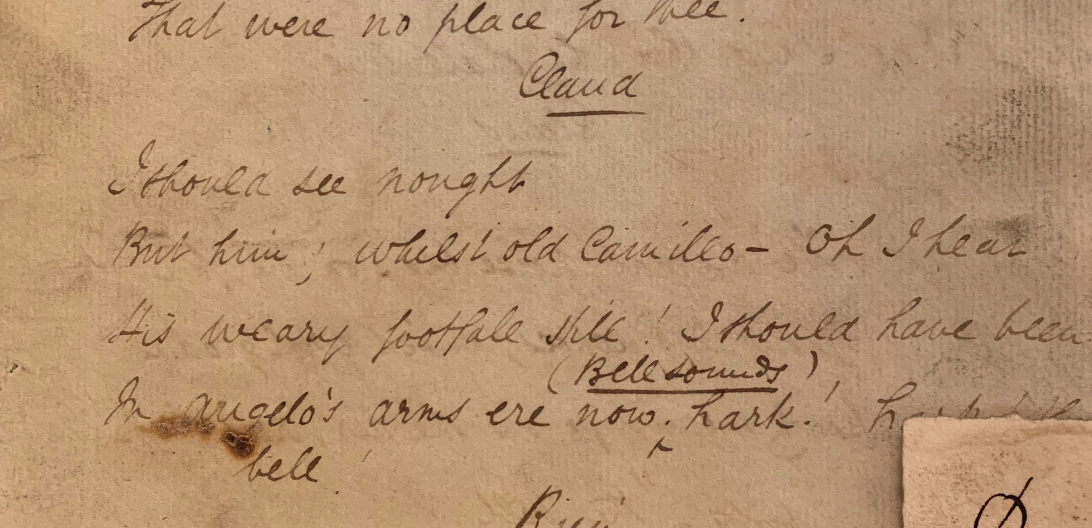 That were no place for thee.
Claud
I should see nought
But him; whilst old Camillo – Oh I hear
His weary footfall still! I should have been
(Bell sounds)
In Angelo's arms ere now. hark!
bell!